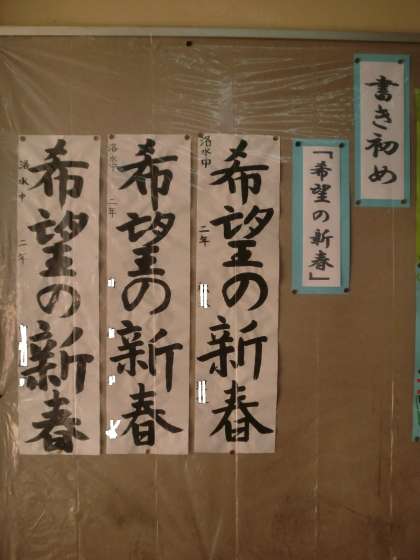 書き初め
「希望の新春」
洛水中 二年
希望の新春
洛水中 二年
希望の新春
洛水中 二年
希望の新春